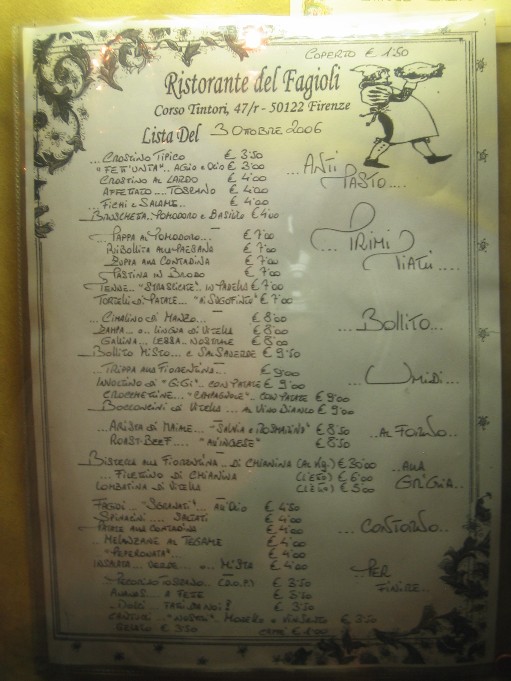 COPERTO € 1.50
Ristorante del Fagioli
Corso Tintori, 47/r - 50122 Firenze
Lista Del 3 OTTOBRE 2006
...CROSTINO TIPICO € 3.50
"FETT'UNTA".. AGLIO e OLIO € 3'00
CROSTINO AL LARDO € 4'00
AFFETTATO.... TOSCANO € 4'00
...FICHI e SALAME.. € 4'00
BRUSCHETTA.. POMODORO e BASILICO € 4'00
...ANTI PASTO....
PAPPA AL POMODORO... € 7'00
RIBOLLITA ALLA PAESANA € 7'00
ZUPPA ALLA CONTADINA € 7'00
PASTINA IN BRODO € 7'00
PENNE.. "STRASCICATE" IN PADELLA € 7'00
TORTELLI DI PATATE... € 7'00
...PRIMI PIATTI....
...CIMALINO DI MANZO... € 8'00
ZAMPA... o... LINGUA DI VITELLA € 8'00
GALLINA... LESSA.. NOSTRALE € 8'00
BOLLITO MISTO... e SALSAVERDE € 9'50
...BOLLITO...
...TRIPPA ALLA FIORENTINA... € 9'00
INVOLTINO DI "GIGI" CON PATATE € 9'00
CROCCHETTINE... "CAMPAGNOLE" CON PATATE € 9'00
BOCCONCINI DI VITELLA... AL VINO BIANCO € 9'00
...UMIDI...
...ARISTA DI MAIALE... "SALVIA e ROSMARINO" € 8'50
ROAST-BEEF.... "ALL'INGLESE" € 8'50
...AL FORNO...
BISTECCA ALLA FIORENTINA... DI CHIANINA (AL Kg.) € 30'00
...FILETTINO DI CHIANINA (L'ETTO) € 6'00
LOMBATINA DI VITELLA (L'ETTO) € 3'00
...ALLA GRIGLIA...
FAGIOLI... ALL'OLIO € 4'50
SPINACINI.... SALTATI € 4'00
PATATE ALLA CONTADINA € 4'00
...MELANZANE AL TEGAME € 4'00
"PEPERONATA".. € 4'00
INSALATA... VERDE... o... MISTA € 4'00
...CONTORNO...
...PECORINO TOSCANO.. (D.O.P.) € 3'50
ANANAS... A FETTE € 3'50
...DOLCI... FATTI DA NOI! € 3'50
CANTUCCI... "NOSTRI" € 3'50
GELATO € 3'50
CAFFÈ
...PER FINIRE...